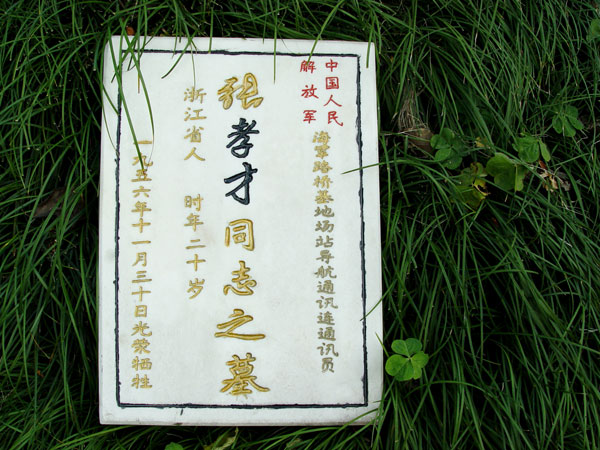 中国人民
解放军
海军路桥基地场站导航通讯连通讯员
张孝才同志之墓
浙江省人 时年二十岁
一九五六年十一月三十日光荣牺牲